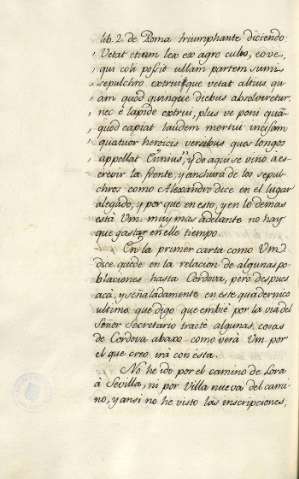 lib. 2 de Roma triumphante diciendo
Vetat etiam lex ex agro culto, eove,
qui coli possit ullam partem sumi
sepulchro extruique vetat altius qu
am quod quinque diebus absolveretur:
nec è lapide extrui, plus ve poni quā
quod capiat laudem mortui incisam
quatuor heroicis versibus quos longos
appellat Ennius, y de aqui se vino a es-
crevir la frente, y anchura de los sepul-
chros como Alexandro dice en el lugar
alegado, y por que en esto, y en lo demas
está Vm. muy mas adelante no hay
que gastar en ello tiempo.
En la primer carta como Vm.
dice quedé en la relacion de algunas po-
blaciones hasta Cordova, pero despues
acà, y señaladamente en este quadernico
ultimo, que digo que embié por la via del
Señor Secretario traté algunas cosas
de Cordova abaxo como verà Vm por
el que creo irá con esta.
No he ido por el camino de Lora
à Sevilla, ni por Villa nueva del cami-
no, y ansi no he visto las inscripciones,